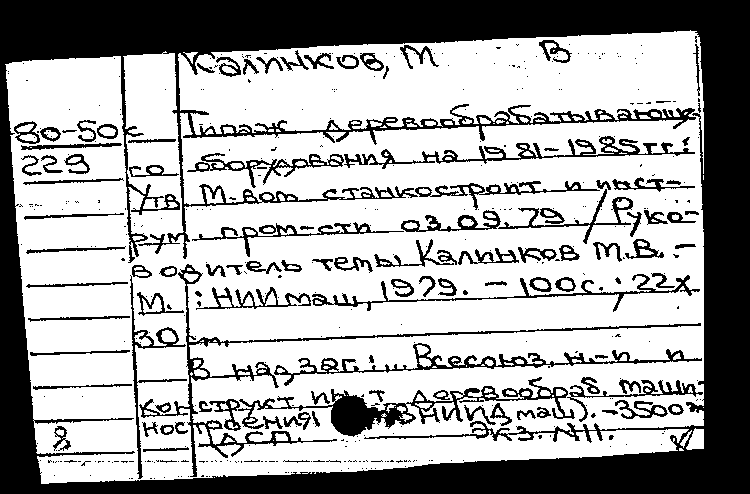 Калинков, М В
80-50к Типаж деревообрабатывающ
229 со оборудования на 1981-1985гг.:
Утв М-вом станкостроит. и инст-
рум. пром-сти 03.09.79. / Руко-
водитель темы Калинков М.В. -
М. : НИИмаш, 1979. - 100с. ; 22х
30см.
В надзаг.: ... Всесоюз. н.-и. и
конструкт. ин-т деревообраб. маши-
ностроения (ВНИИДмаш). - 3500
8 ДСП. Экз. N11.